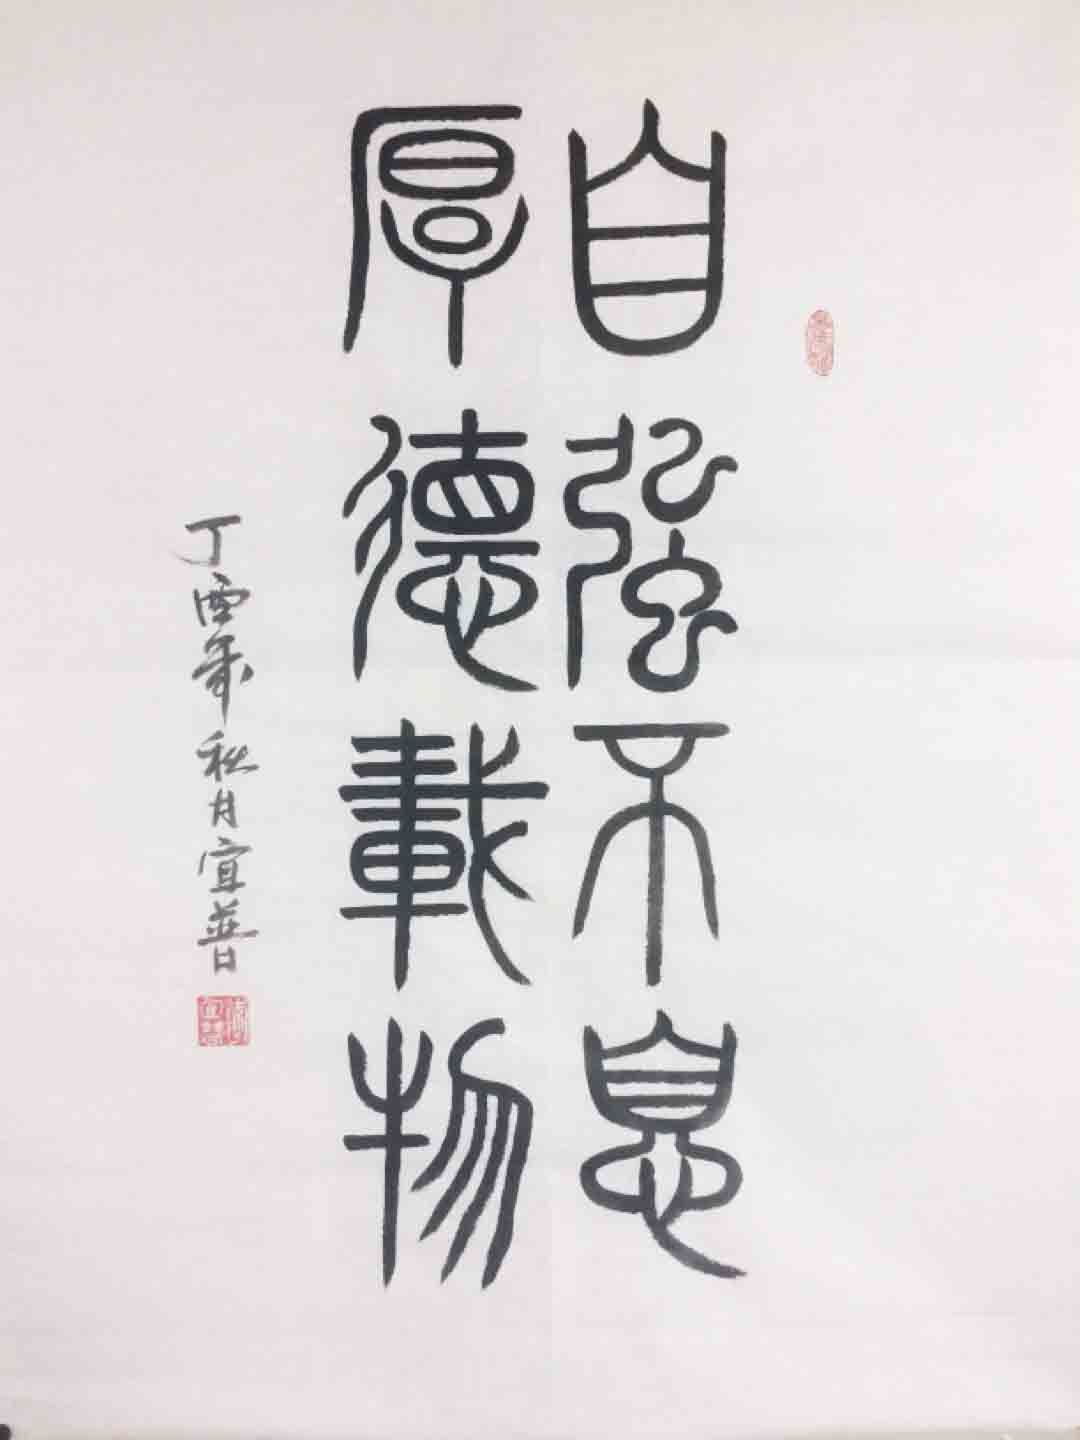 自強不息
厚德載物
丁酉年秋月宜普